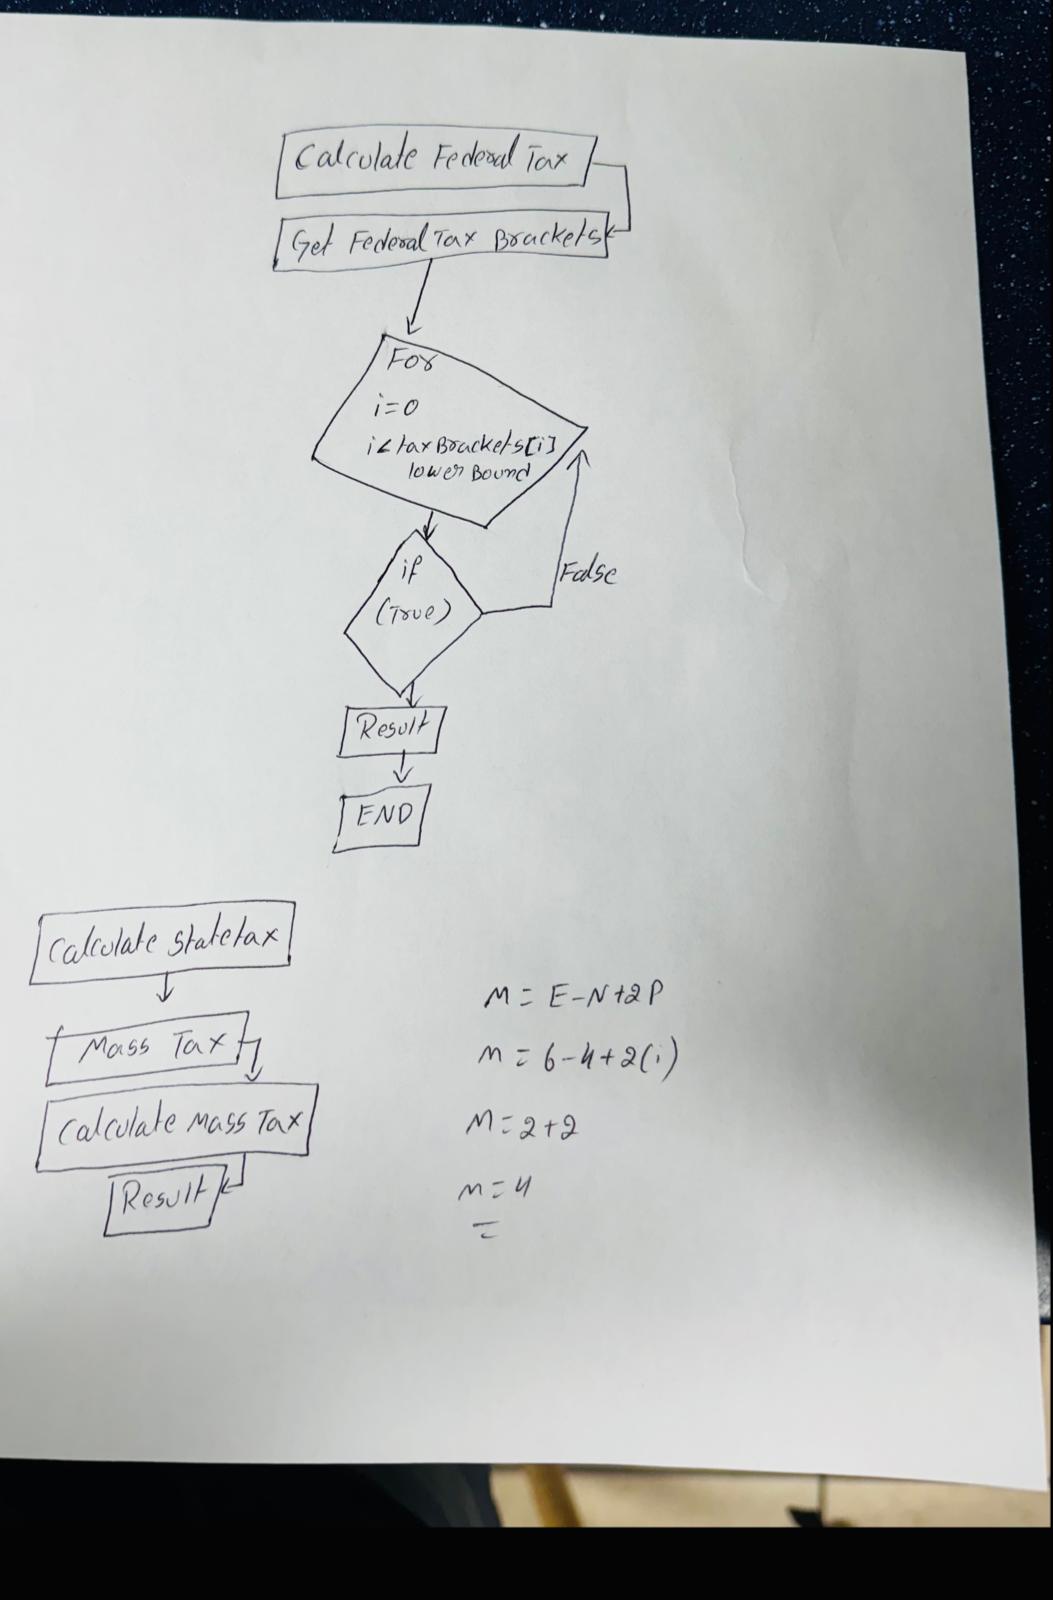 Calculate Federal Tax
Get Federal Tax Brackets
For
i=0
i<taxBrackets[i]
lower Bound
if
(True)
False
Result
END
Calculate statetax
Mass Tax
Calculate Mass Tax
Result
M = E-N+2P
M = 6-4+2(i)
M = 2+2
M = 4